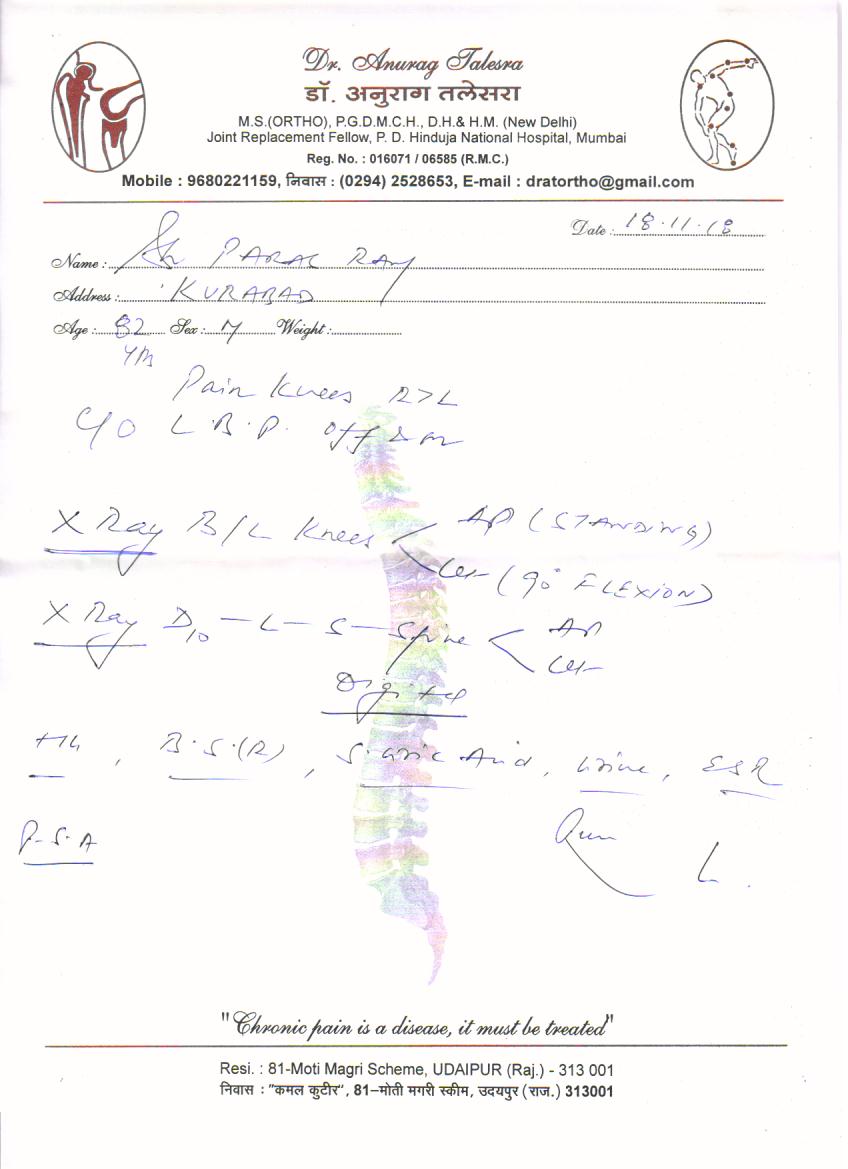 Dr. Anurag Talesra
डॉ. अनुराग तलेसरा
M.S.(ORTHO), P.G.D.M.C.H., D.H.& H.M. (New Delhi)
Joint Replacement Fellow, P. D. Hinduja National Hospital, Mumbai
Reg. No. : 016071 / 06585 (R.M.C.)
Mobile : 9680221159, निवास : (0294) 2528653, E-mail : dratortho@gmail.com
Date : 18.11.18
Name : Sh PARAS RAM
Address : KURABAD
Age : 82 Sex : M Weight :
Yrs
Pain Knees R>L
C/O L.B.P. off & on
X Ray B/L Knees AP (STANDING)
Lat (90° FLEXION)
X Ray D10-L-S-Spine AP
Lat
Digital
Hb, B.S.(R), S. Uric Acid, Urine, ESR
P.S.A
"Chronic pain is a disease, it must be treated"
Resi. : 81-Moti Magri Scheme, UDAIPUR (Raj.) - 313 001
निवास : "कमल कुटीर", 81–मोती मगरी स्कीम, उदयपुर (राज.) 313001